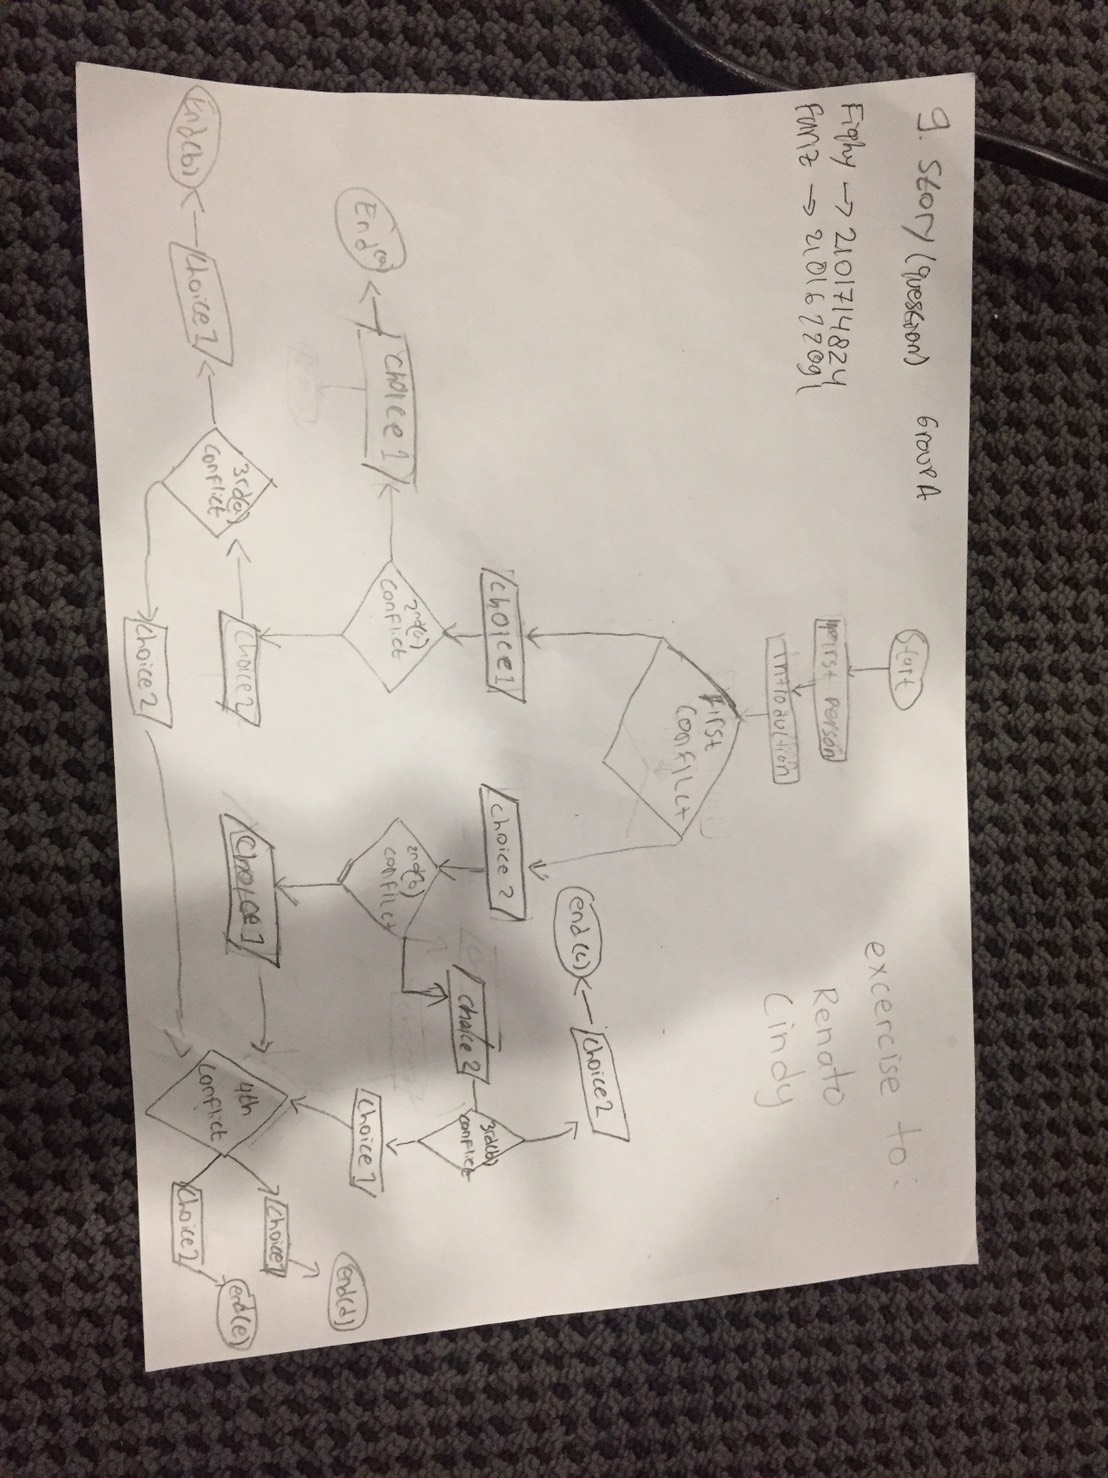 9. Story (question) Group A
Fighy → 2101714824
Fariz → 2101677091
excercise to:
Renato
Cindy
Start
First person
introduction
First
conflict
choice 1
choice 2
2nd(a)
conflict
2nd(b)
conflict
choice 1
End(a)
choice 2
3rd(a)
conflict
choice 1
End(b)
choice 2
choice 1
choice 2
3rd(b)
conflict
choice 2
end(c)
choice 1
4th
conflict
choice 1
end(d)
choice 2
end(e)